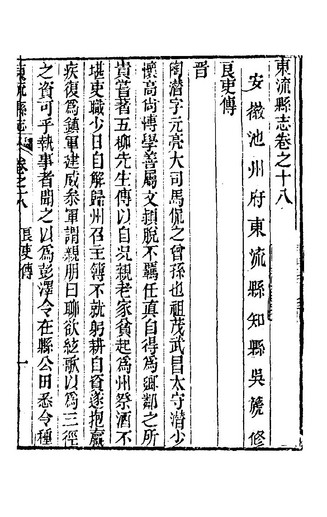 東流縣志卷之十八
安徽池州府東流縣知縣吳篪修
良吏傳
晉
陶潛字元亮大司馬侃之曾孫也祖茂武昌太守潛少
懷高尚博學善屬文穎脫不羈任真自得為鄉鄰之所
貴嘗著五柳先生傳以自況親老家貧起為州祭酒不
堪吏職少日自解歸州召主簿不就躬耕自資遂抱羸
疾復為鎮軍建威參軍謂親朋曰聊欲絃歌以為三徑
之資可乎執事者聞之以為彭澤令在縣公田悉令種
東流縣志 卷之十八 良吏傳 一